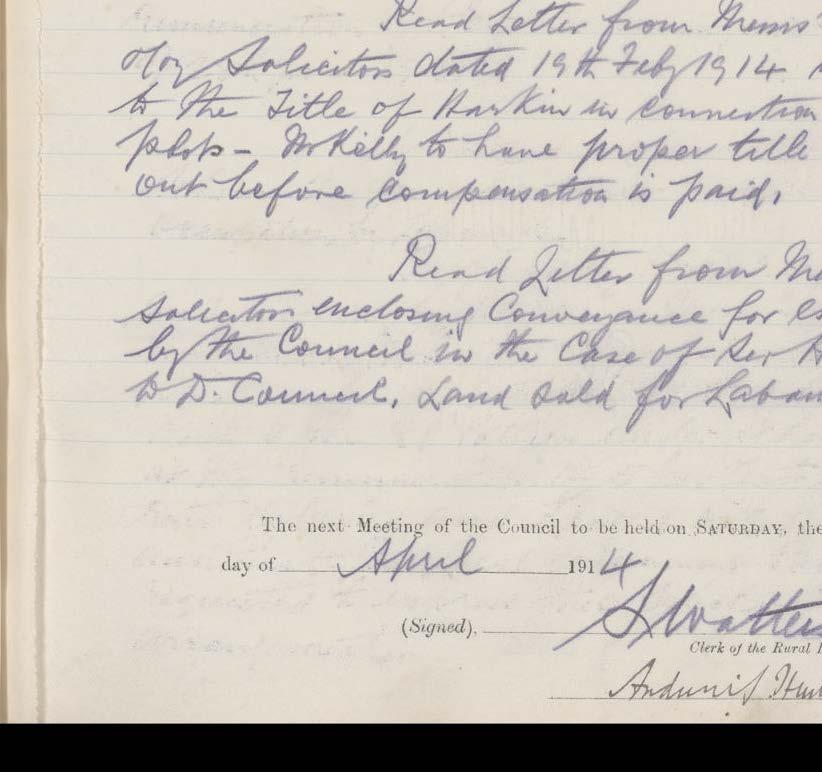 Read Letter from Messrs
Solicitors dated 19th Feby 1914
to the Title of Harkin in connection
plots - Mr Kelly to have proper title
out before compensation is paid.
Read Letter from
Solicitors enclosing Conveyance for
by the Council in the Case of
to D. Council, Land sold for
The next Meeting of the Council to be held on SATURDAY, the
day of April 1914
(Signed), S Watters
Clerk of the Rural